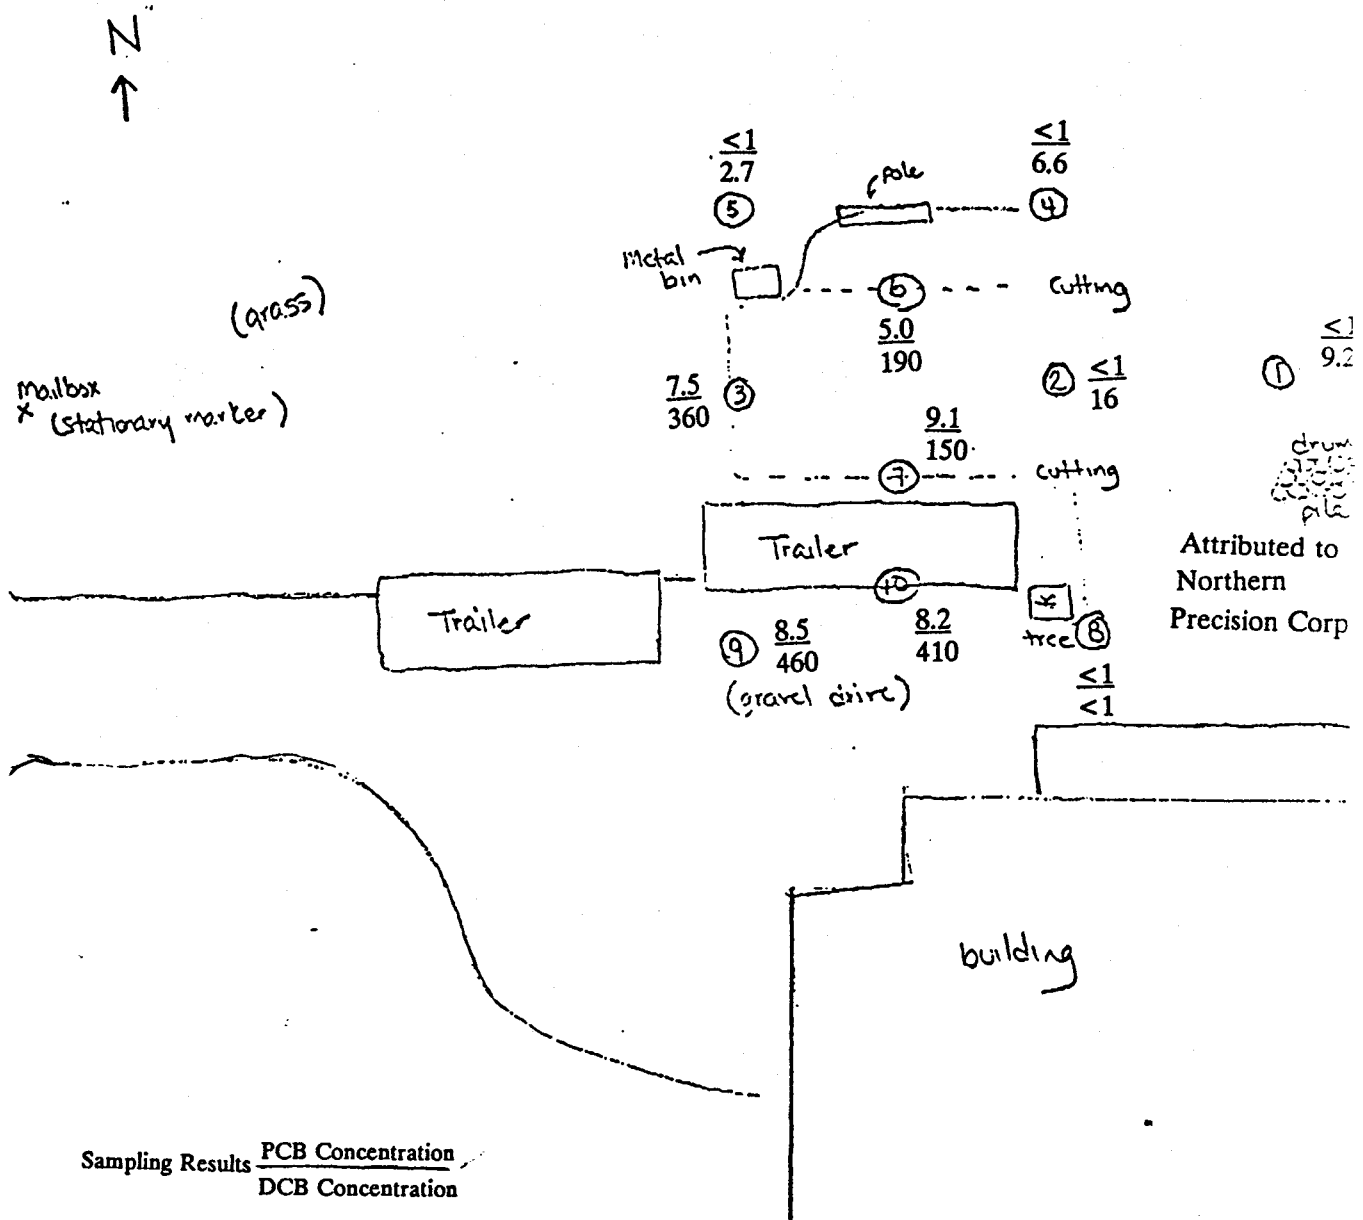 N
<1
2.7
5
<1
6.6
4
pole
Metal
bin
6
cutting
5.0
190
(grass)
<1
9.2
1
2
<1
16
mailbox
x (stationary marker)
7.5
360
3
9.1
150
7
cutting
drum
pile
Trailer
Attributed to
Northern
Precision Corp
Trailer
10
tree
8
9
8.5
460
8.2
410
(gravel drive)
<1
<1
building
Sampling Results PCB Concentration
DCB Concentration